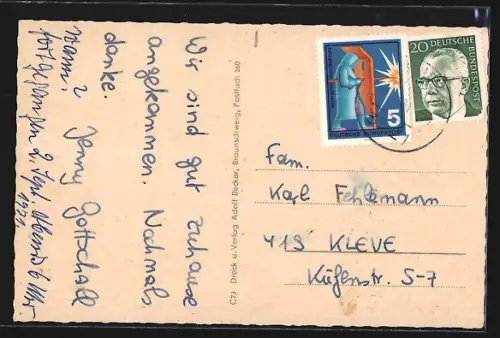 Wir sind gut zuhause
angekommen. Nochmals
danke.
Jenny Gottschall
2. Sept. abend 6 Uhr
1971
C73 Druck u. Verlag Adolf Becker, Braunschweig, Postfach 260
5
DEUTSCHE BUNDESPOST
20 DEUTSCHE
BUNDESPOST
Fam.
Karl Fehlemann
419 KLEVE
Küfenstr. 5-7